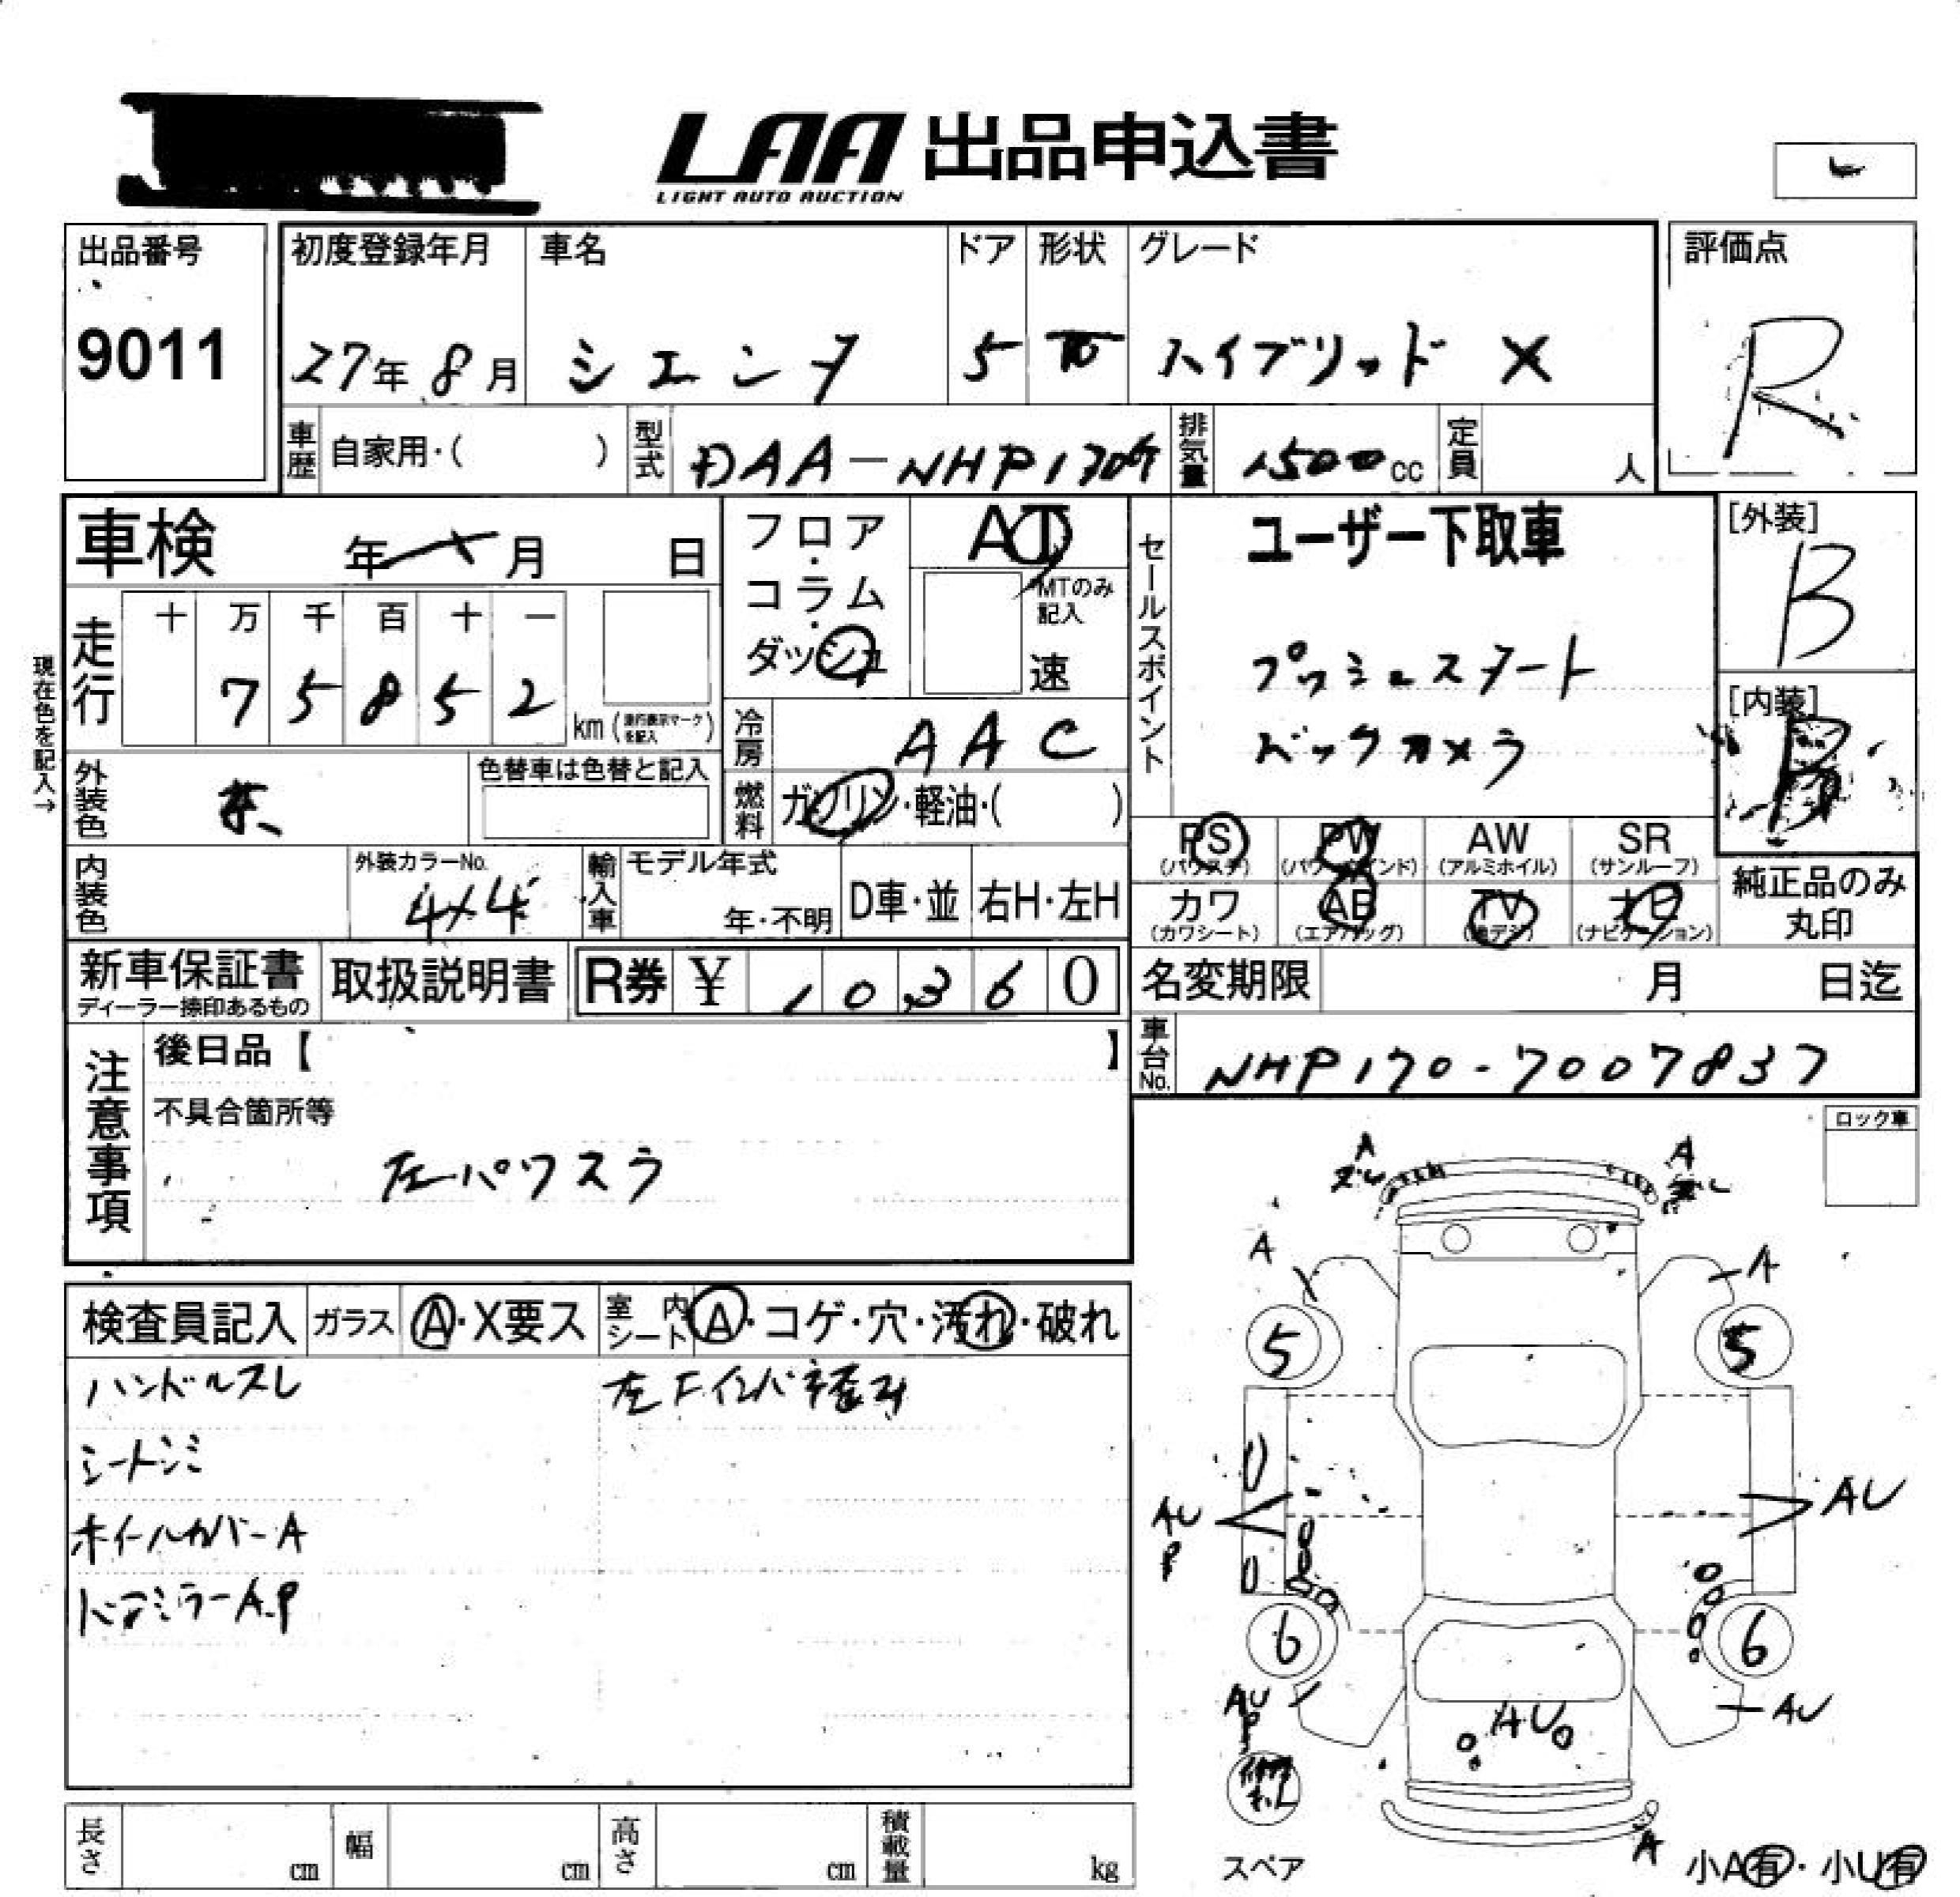 LAA 出品申込書
LIGHT AUTO AUCTION
出品番号
9011
初度登録年月 車名 ドア 形状 グレード
27年 8月 シエンタ 5 ハイブリッド X
評価点
R
車歴 自家用・( ) 型式 DAA-NHP170G 排気量 1500cc 定員 人
車検 年 月 日
フロア・コラム・ダッシュ
AT
MTのみ記入
速
セールスポイント
ユーザー下取車
プッシュスタート
バックカメラ
[外装]
B
[内装]
B
現在色を記入→
走行 十 万 千 百 十 一
7 5 8 5 2 km (走行表示マークを記入)
冷房 AAC
外装色 茶 色替車は色替と記入
燃料 ガソリン・軽油・( )
PS (パワステ) PW (パワーウインド) AW (アルミホイル) SR (サンルーフ)
カワ (カワシート) AB (エアバッグ) TV (地デジ) ナビ (ナビゲーション)
純正品のみ丸印
内装色 外装カラーNo. 4X4 輸入車 モデル年式 年・不明 D車・並 右H・左H
新車保証書 ディーラー捺印あるもの 取扱説明書 R券 ¥ 10,360
名変期限 月 日迄
車台No. NHP170-7007837
注意事項
後日品【 】
不具合箇所等
左パワスラ
ロック車
検査員記入 ガラス A・X要ス 室内シート A・コゲ・穴・汚れ・破れ
ハンドルスレ 左Fインパネ歪み
シートシミ
ホイールカバーA
ドアミラーA.P
A A
A A
5 5
AU P AU
6 6
AU P AU
AU
A
スペア
小A有・小U有
長さ cm 幅 cm 高さ cm 積載量 kg